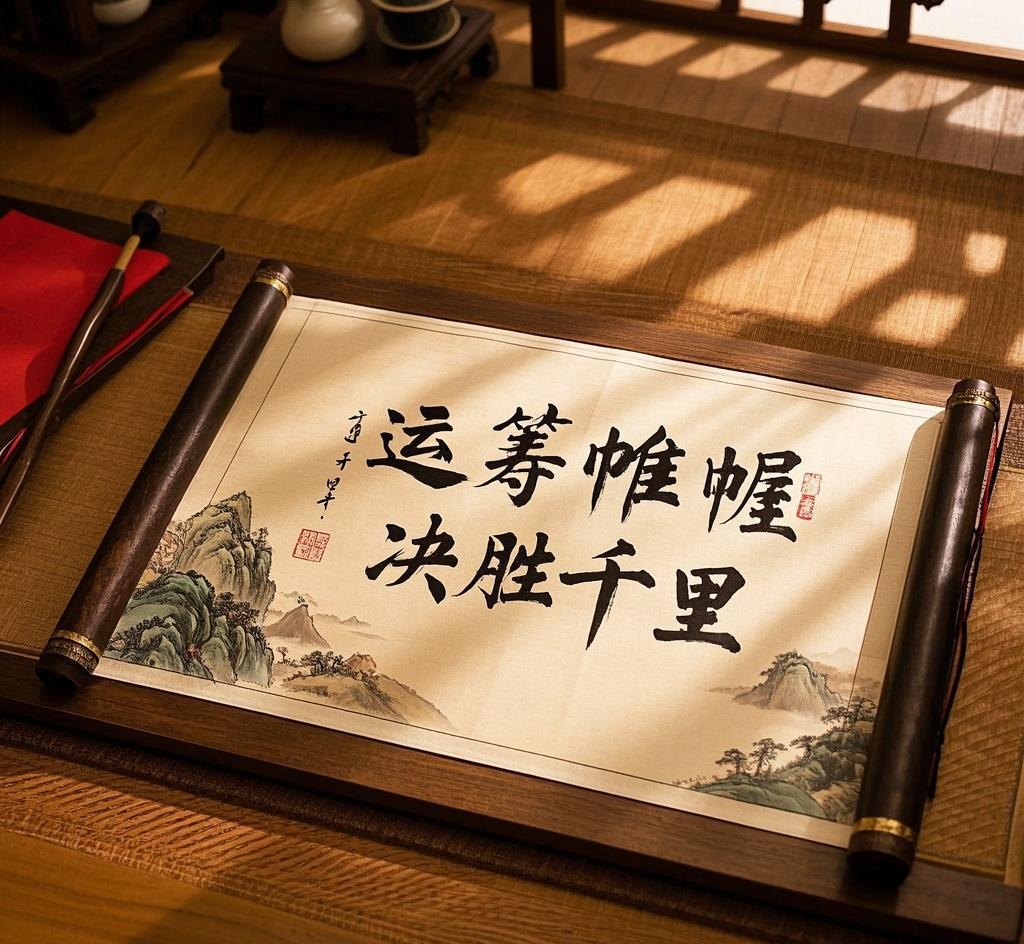 运筹帷幄
决胜千里